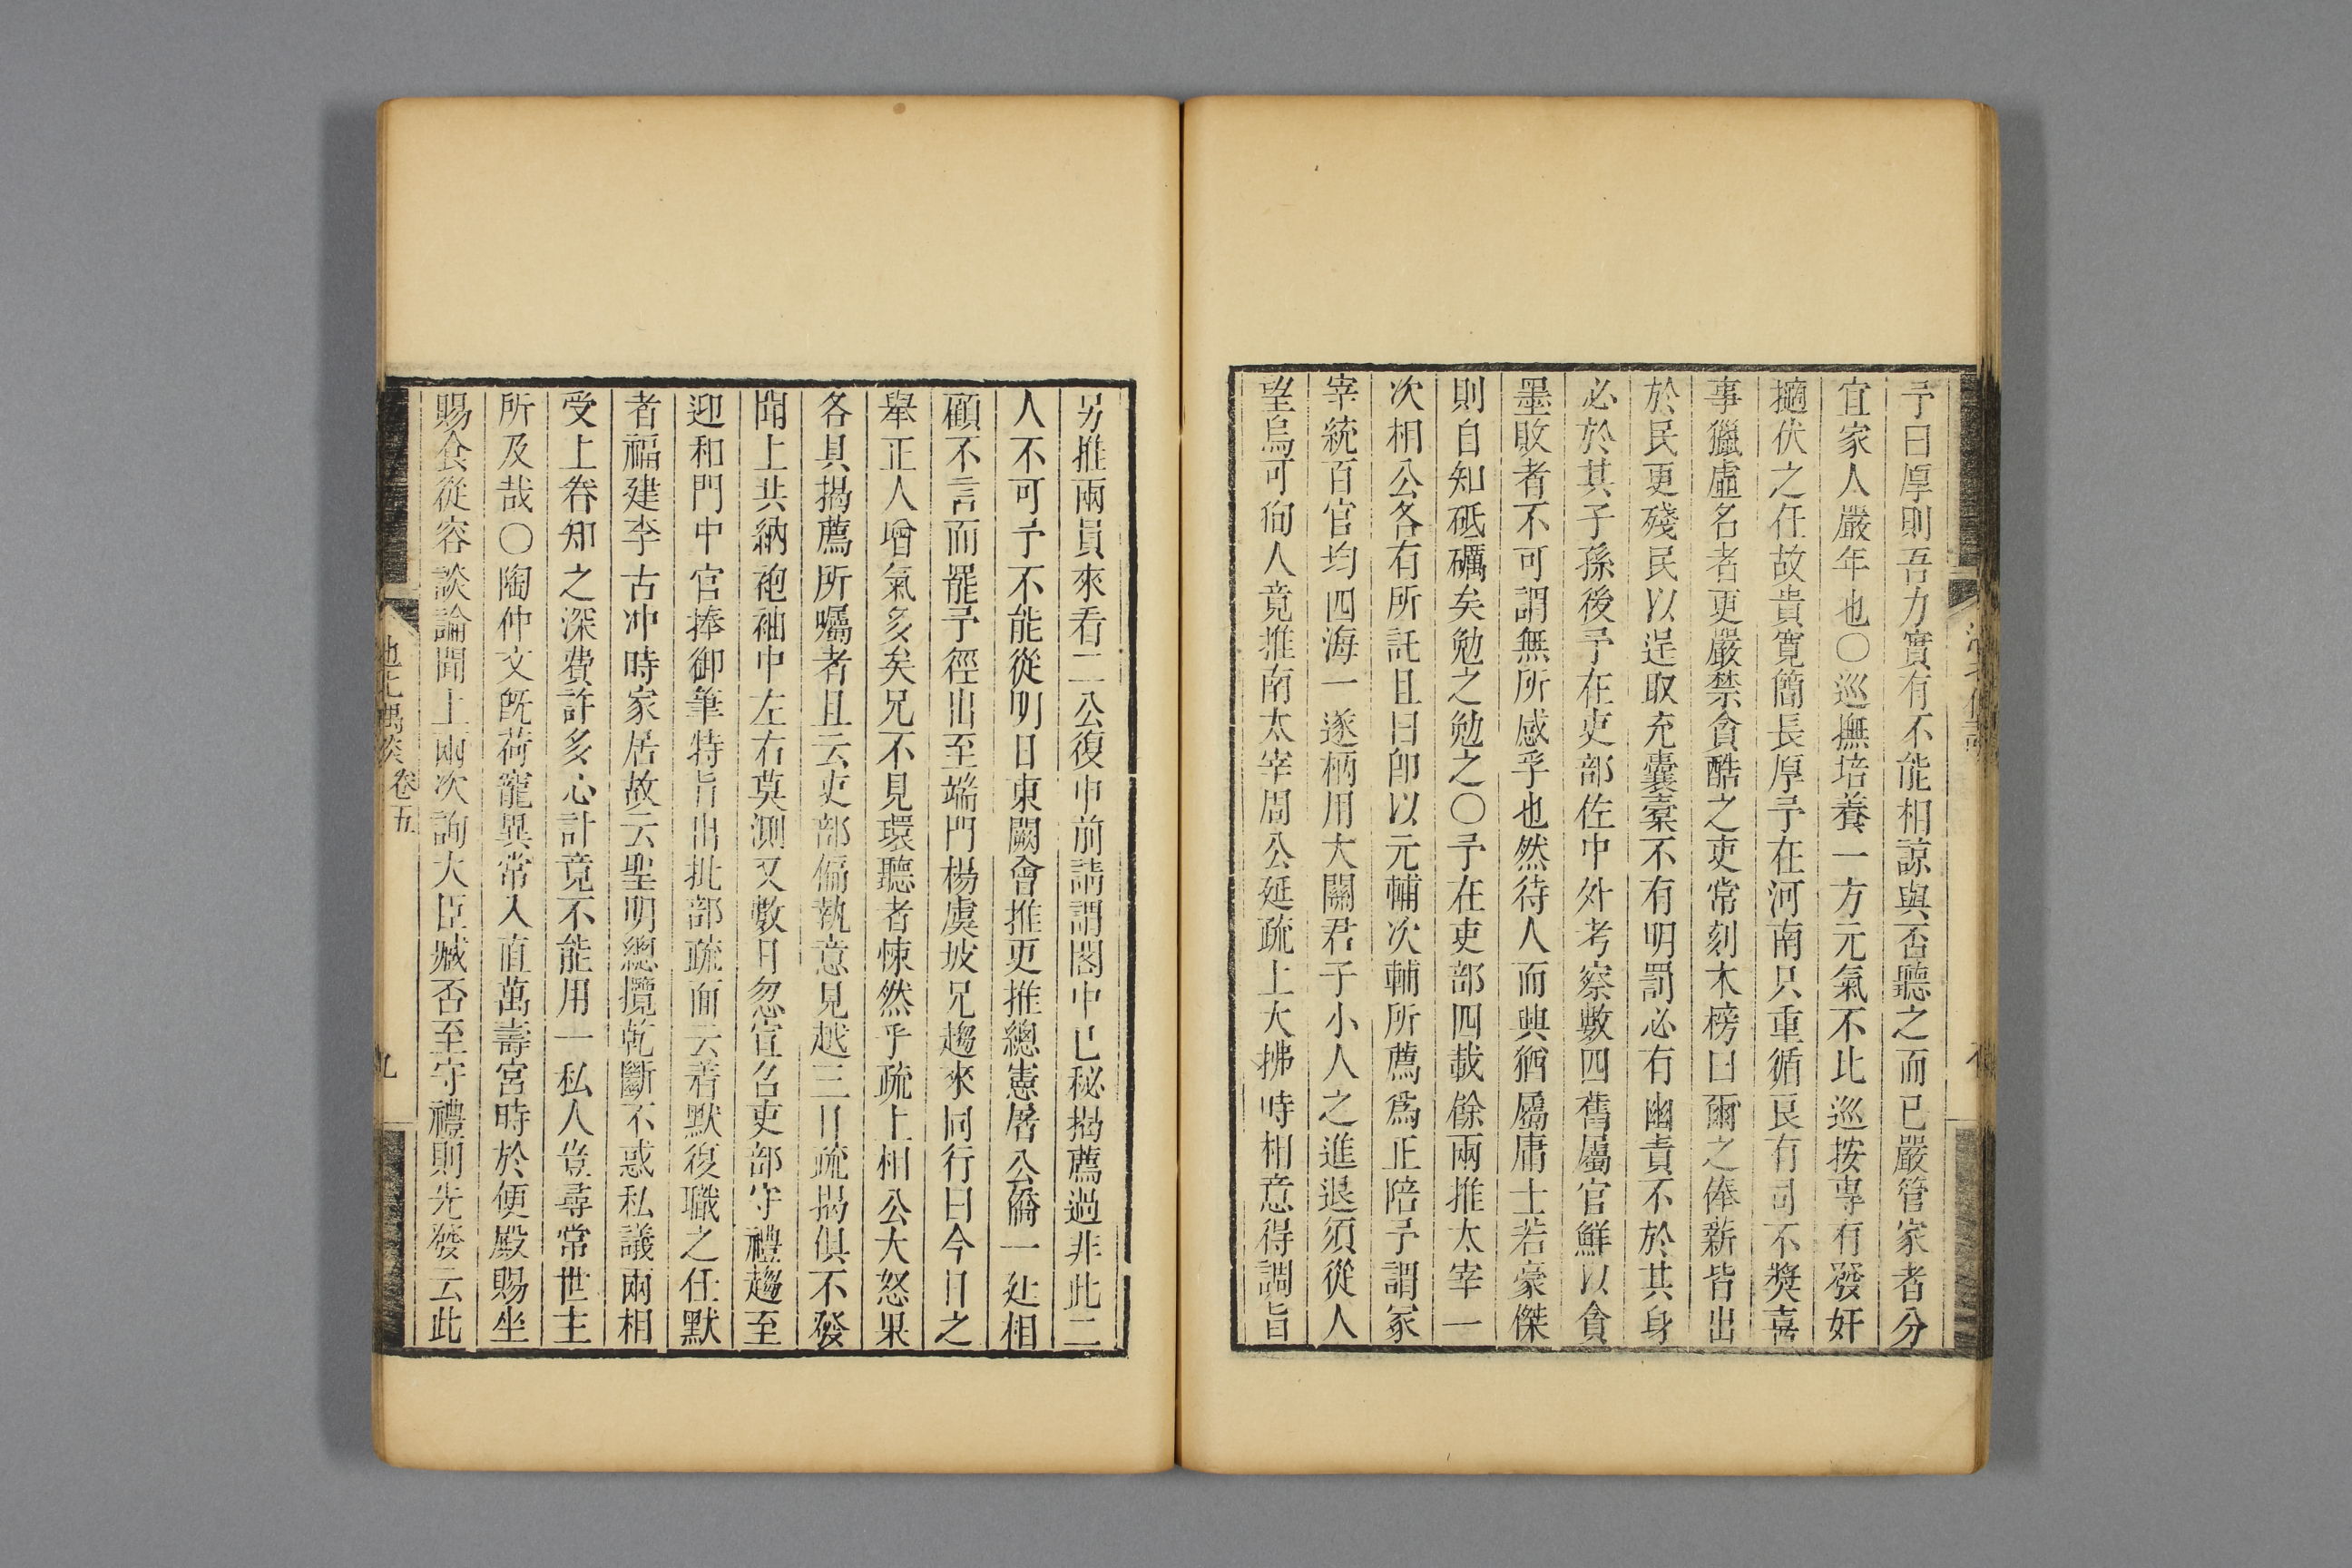 予曰厚則吾力實有不能相諒與否聽之而已嚴管家者分
宜家人嚴年也○巡撫培養一方元氣不比巡按專有發奸
擿伏之任故貴寛簡長厚予在河南只重循良有司不奬喜
事獵虛名者更嚴禁貪酷之吏常刻木榜曰爾之俸薪皆出
於民更殘民以逞取充囊橐不有明罰必有幽責不於其身
必於其子孫後予在吏部佐中外考察數四舊屬官鮮以貪
墨敗者不可謂無所感孚也然待人而興猶屬庸士若豪傑
則自知砥礪矣勉之勉之○予在吏部四載餘兩推太宰一
次相公各有所託且曰卽以元輔次輔所薦爲正陪予謂冢
宰統百官均四海一遂柄用大關君子小人之進退須從人
望烏可徇人竟推南太宰周公延疏上大拂時相意得調旨
另推兩員來看二公復申前請謂閣中已秘揭薦過非此二
人不可予不能從明日東闕會推更推總憲屠公僑一赴相
顧不言而罷予徑出至端門楊虞坡兄趨來同行曰今日之
舉正人增氣多矣兄不見環聽者悚然乎疏上相公大怒果
各具揭薦所囑者且云吏部偏執意見越三日疏揭俱不發
聞上共納袍袖中左右莫測又數日忽宣召吏部守禮趨至
迎和門中官捧御筆特旨出批部疏面云着默復職之任默
者福建李古冲時家居故云聖明總攬乾斷不惑私議兩相
受上眷知之深費許多心計竟不能用一私人豈尋常世主
所及哉○陶仲文旣荷寵異常入直萬壽宮時於便殿賜坐
賜食從容談論聞上兩次詢大臣臧否至守禮則先發云此
卷五
九